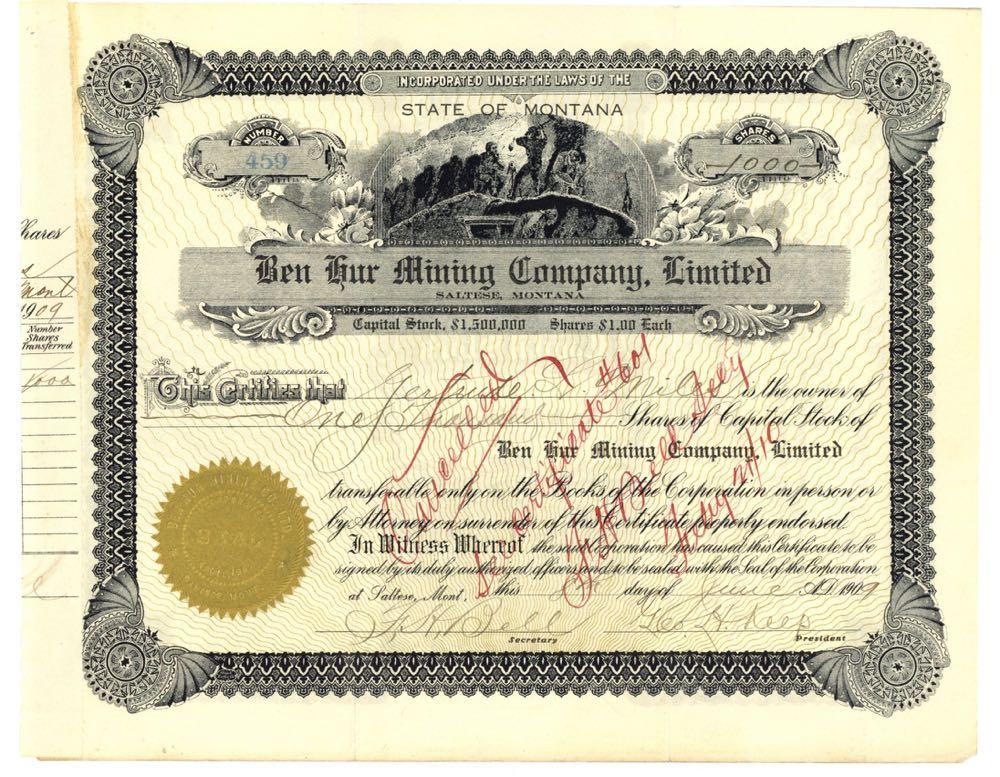 INCORPORATED UNDER THE LAWS OF THE
STATE OF MONTANA
NUMBER
459
SHARES
1000
Ben Hur Mining Company, Limited
SALTESE, MONTANA
Capital Stock, $1,500,000 Shares $1.00 Each
This Certifies that Gertrude is the owner of
One Thousand Shares of Capital Stock of
Ben Hur Mining Company, Limited
transferable only on the Books of the Corporation in person or
by Attorney on surrender of this Certificate properly endorsed.
In Witness Whereof the said Corporation has caused this Certificate to be
signed by its duly authorized officers and to be sealed with the Seal of the Corporation
at Saltese, Mont., this day of June A.D. 1909
Bell
Secretary
Geo H
President
Cancelled
See certificate #601
Secy
SEAL
Shares
Mont
1909
Number
Shares
Transferred
1000